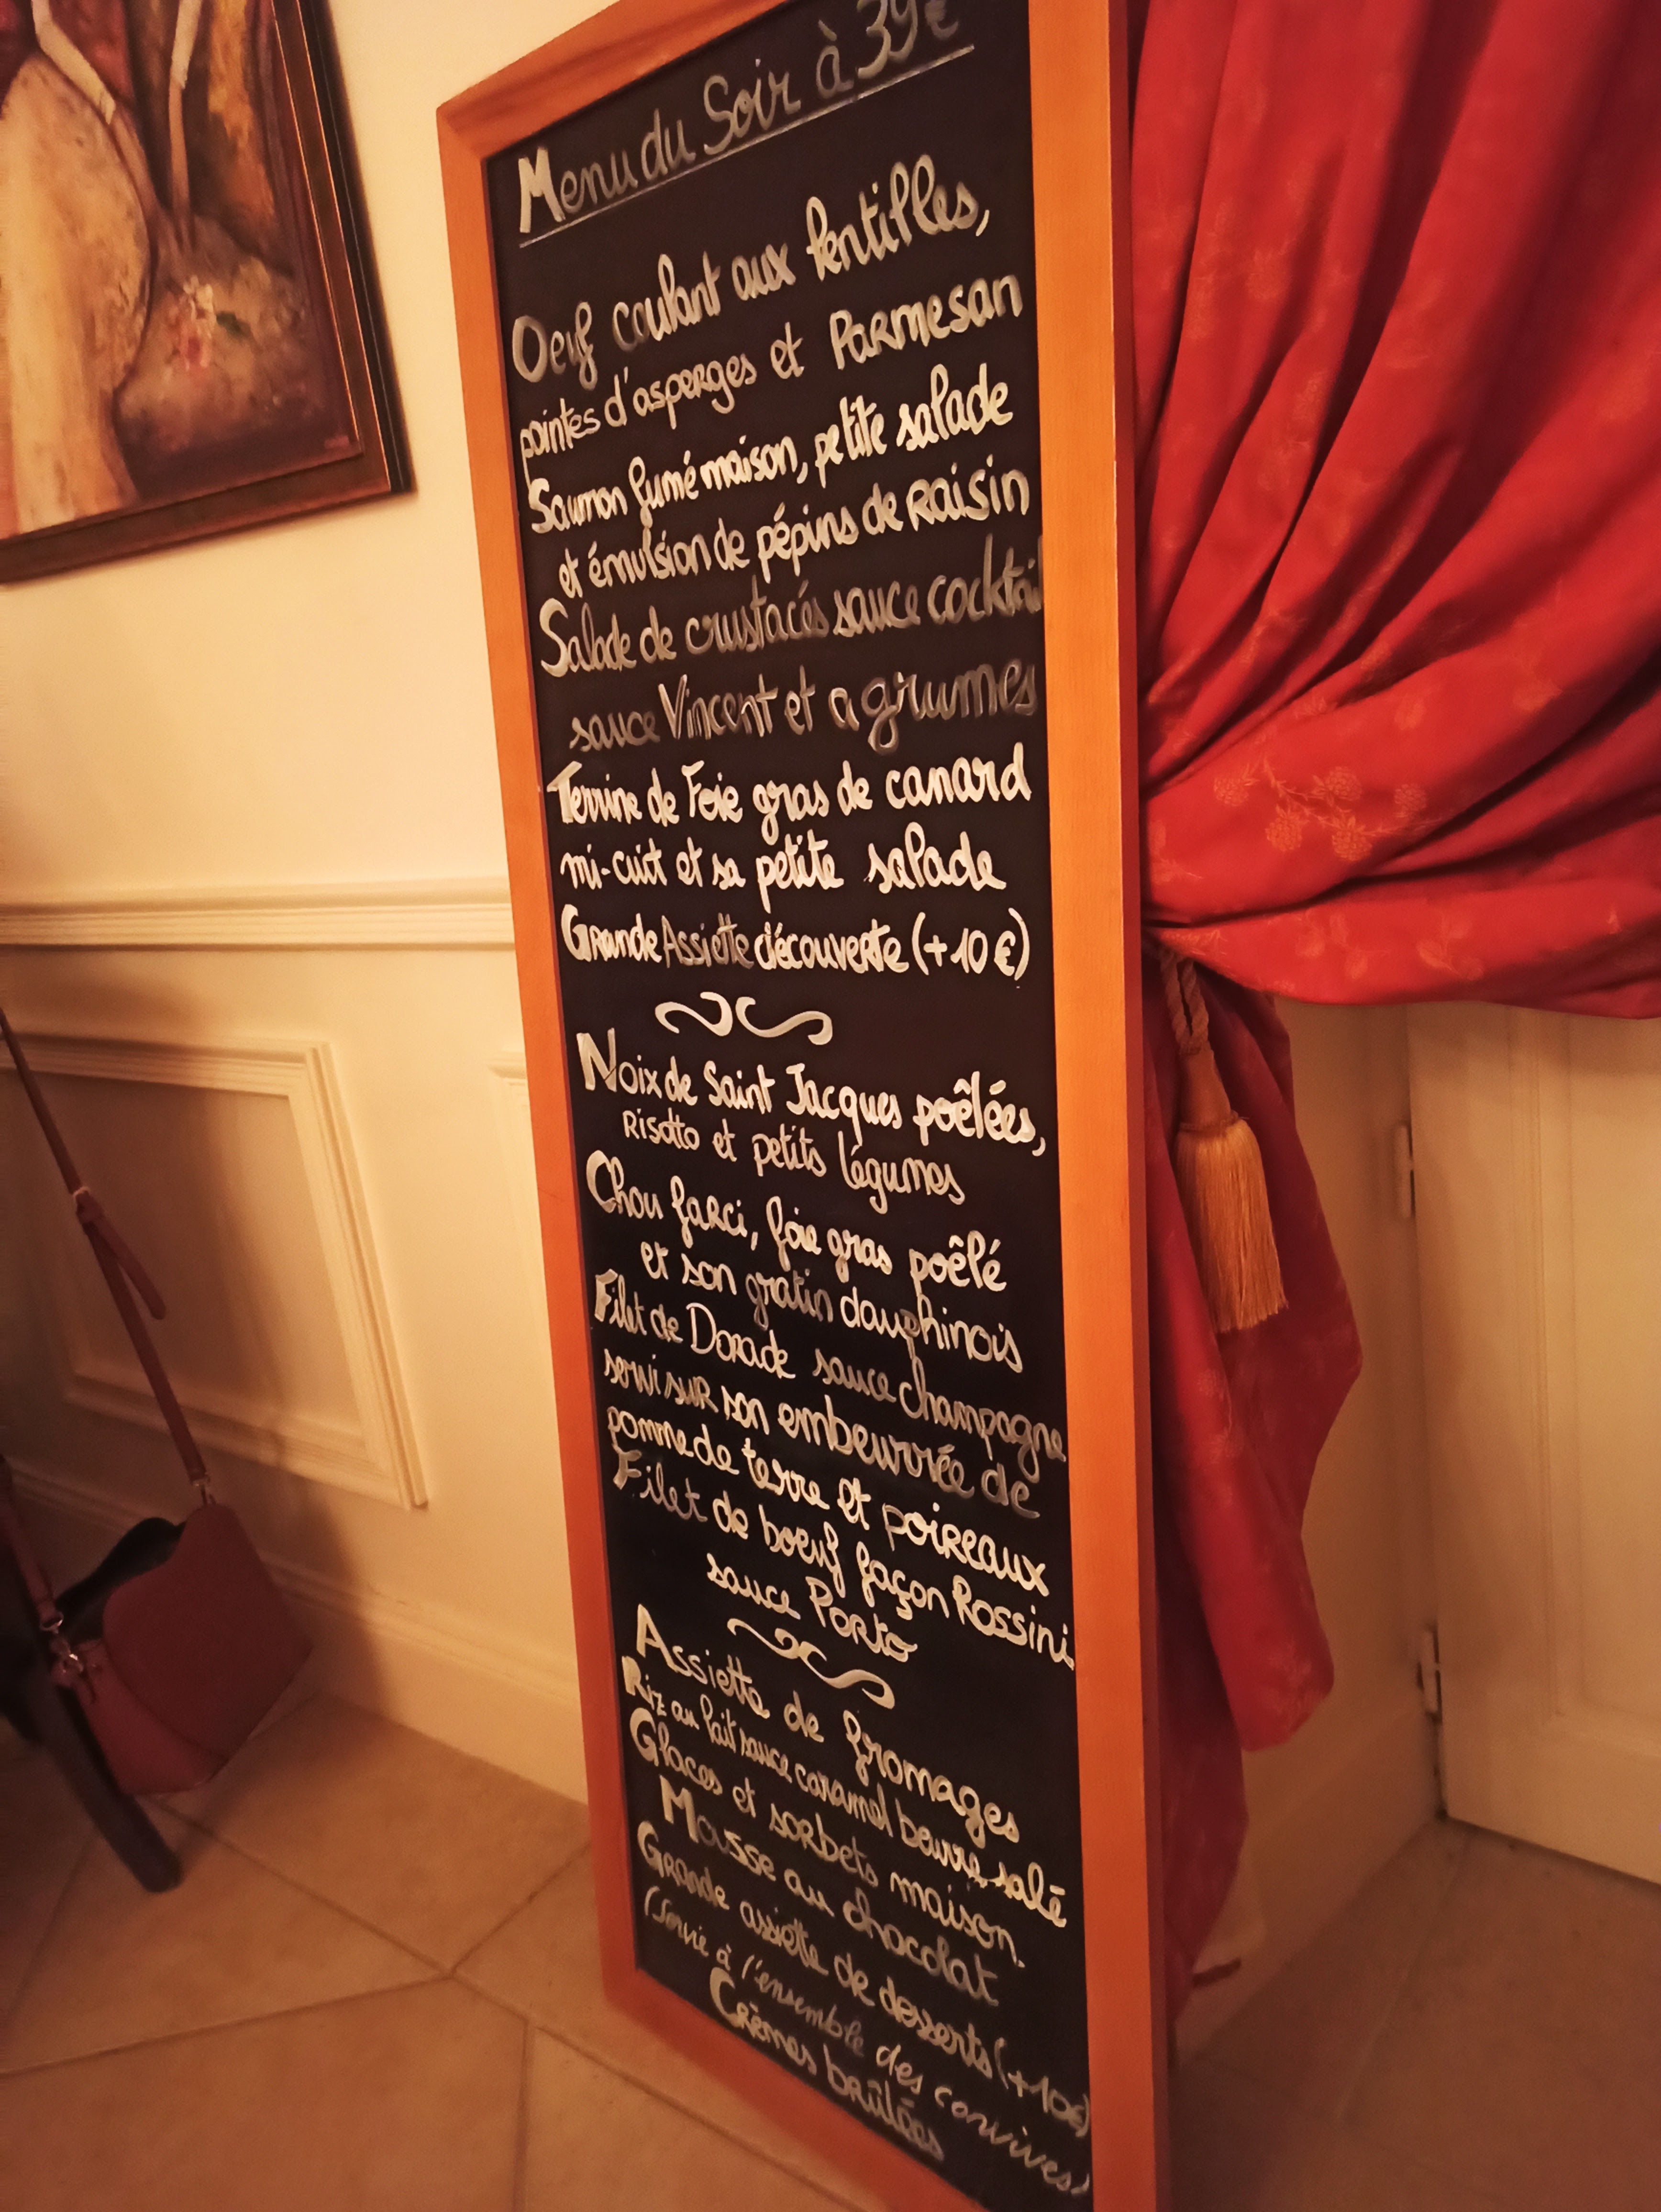 Menu du Soir à 39€
Oeuf coulant aux lentilles,
pointes d'asperges et Parmesan
Saumon fumé maison, petite salade
et émulsion de pépins de raisin
Salade de crustacés sauce cocktail
sauce Vincent et agrumes
Terrine de Foie gras de canard
mi-cuit et sa petite salade
Grande Assiette découverte (+10€)
Noix de Saint Jacques poêlées,
Risotto et petits légumes
Chou farci, foie gras poêlé
et son gratin dauphinois
Filet de Dorade sauce champagne
servi sur son embeurrée de
pomme de terre et poireaux
Filet de boeuf façon Rossini
sauce Porto
Assiette de fromages
Riz au lait sauce caramel beurre salé
Glaces et sorbets maison.
Mousse au chocolat
Grande assiette de desserts (+10€)
(servie à l'ensemble des convives)
Crèmes brûlées